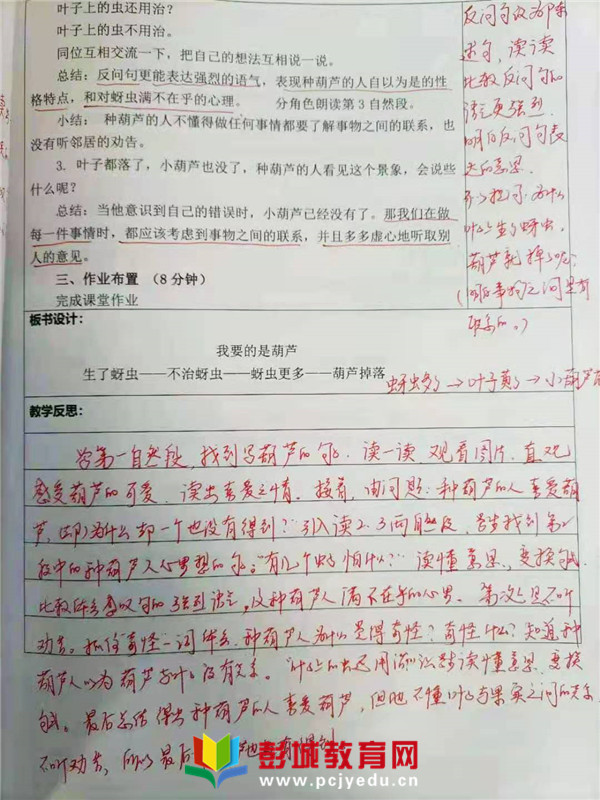 叶子上的虫还用治?
叶子上的虫不用治。
同位互相交流一下,把自己的想法互相说一说。
总结:反问句更能表达强烈的语气,表现种葫芦的人自以为是的性
格特点,和对蚜虫满不在乎的心理。 分角色朗读第3自然段。
小结: 种葫芦的人不懂得做任何事情都要了解事物之间的联系,也
没有听邻居的劝告。
3. 叶子都落了,小葫芦也没了,种葫芦的人看见这个景象,会说些
什么呢?
总结:当他意识到自己的错误时,小葫芦已经没有了。那我们在做
每一件事情时,都应该考虑到事物之间的联系,并且多多虚心地听取别
人的意见。
三、作业布置 (8分钟)
完成课堂作业
反问句改为陈
述句,读读
比较反问句的
语气更强烈
明白反问句表
达的意思
为什么
生了蚜虫,
葫芦就掉了呢?
板书设计:
我要的是葫芦
生了蚜虫——不治蚜虫——蚜虫更多——葫芦掉落
蚜虫多了→叶子黄了→小葫芦
教学反思:
第一自然段,找到写葫芦的句子,读一读,观看图片,直观
感受葫芦的可爱,读出喜爱之情。接着,由问题:种葫芦的人喜爱葫
芦,为什么却一个也没有得到?引入读2、3两自然段,找到第2
段中的种葫芦人心里想的句子"有几个虫子怕什么?"读懂意思,变换句式
比较体会感叹句的强烈语气,及种葫芦人满不在乎的心里。第三次不听
劝告。抓住奇怪一词体会,种葫芦人为什么觉得奇怪?奇怪什么?知道种
葫芦人以为葫芦和叶子没有关系。"叶子上的虫还用治"读懂意思,变换
句式。最后总结得出种葫芦的人喜爱葫芦,但他不懂叶子与果实之间的关系,
不听劝告,所以最后
彭城教育网
www.pcjyedu.cn